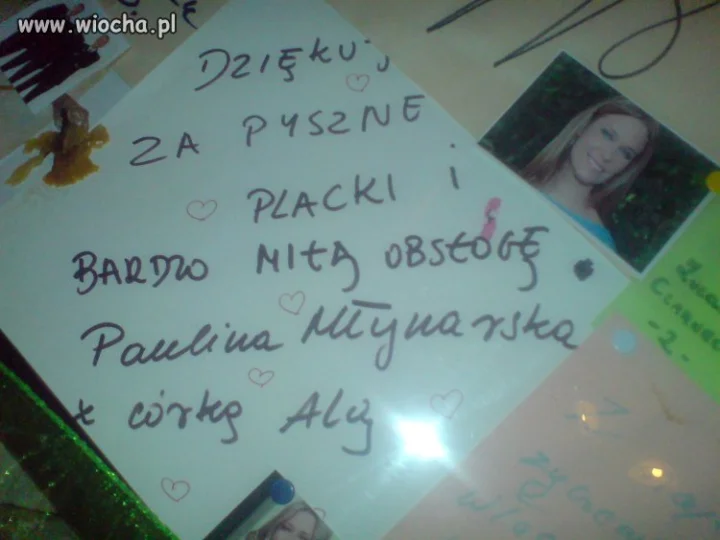 www.wiocha.pl
DZIĘKUJ
ZA PYSZNE
PLACKI i
BARDZO MIŁĄ OBSŁOGĘ
Paulina Młynarska
z córką Alą
-2-